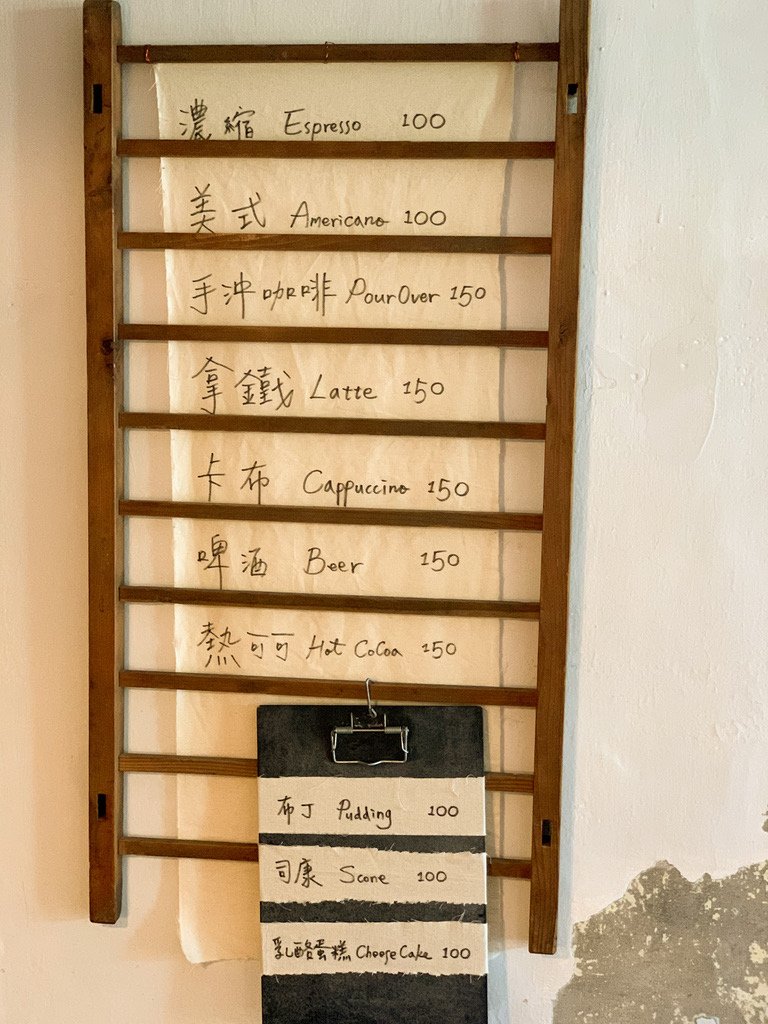 濃縮 Espresso 100
美式 Americano 100
手沖咖啡 PourOver 150
拿鐵 Latte 150
卡布 Cappuccino 150
啤酒 Beer 150
熱可可 Hot CoCoa 150
布丁 Pudding 100
司康 Scone 100
乳酪蛋糕 Cheese Cake 100